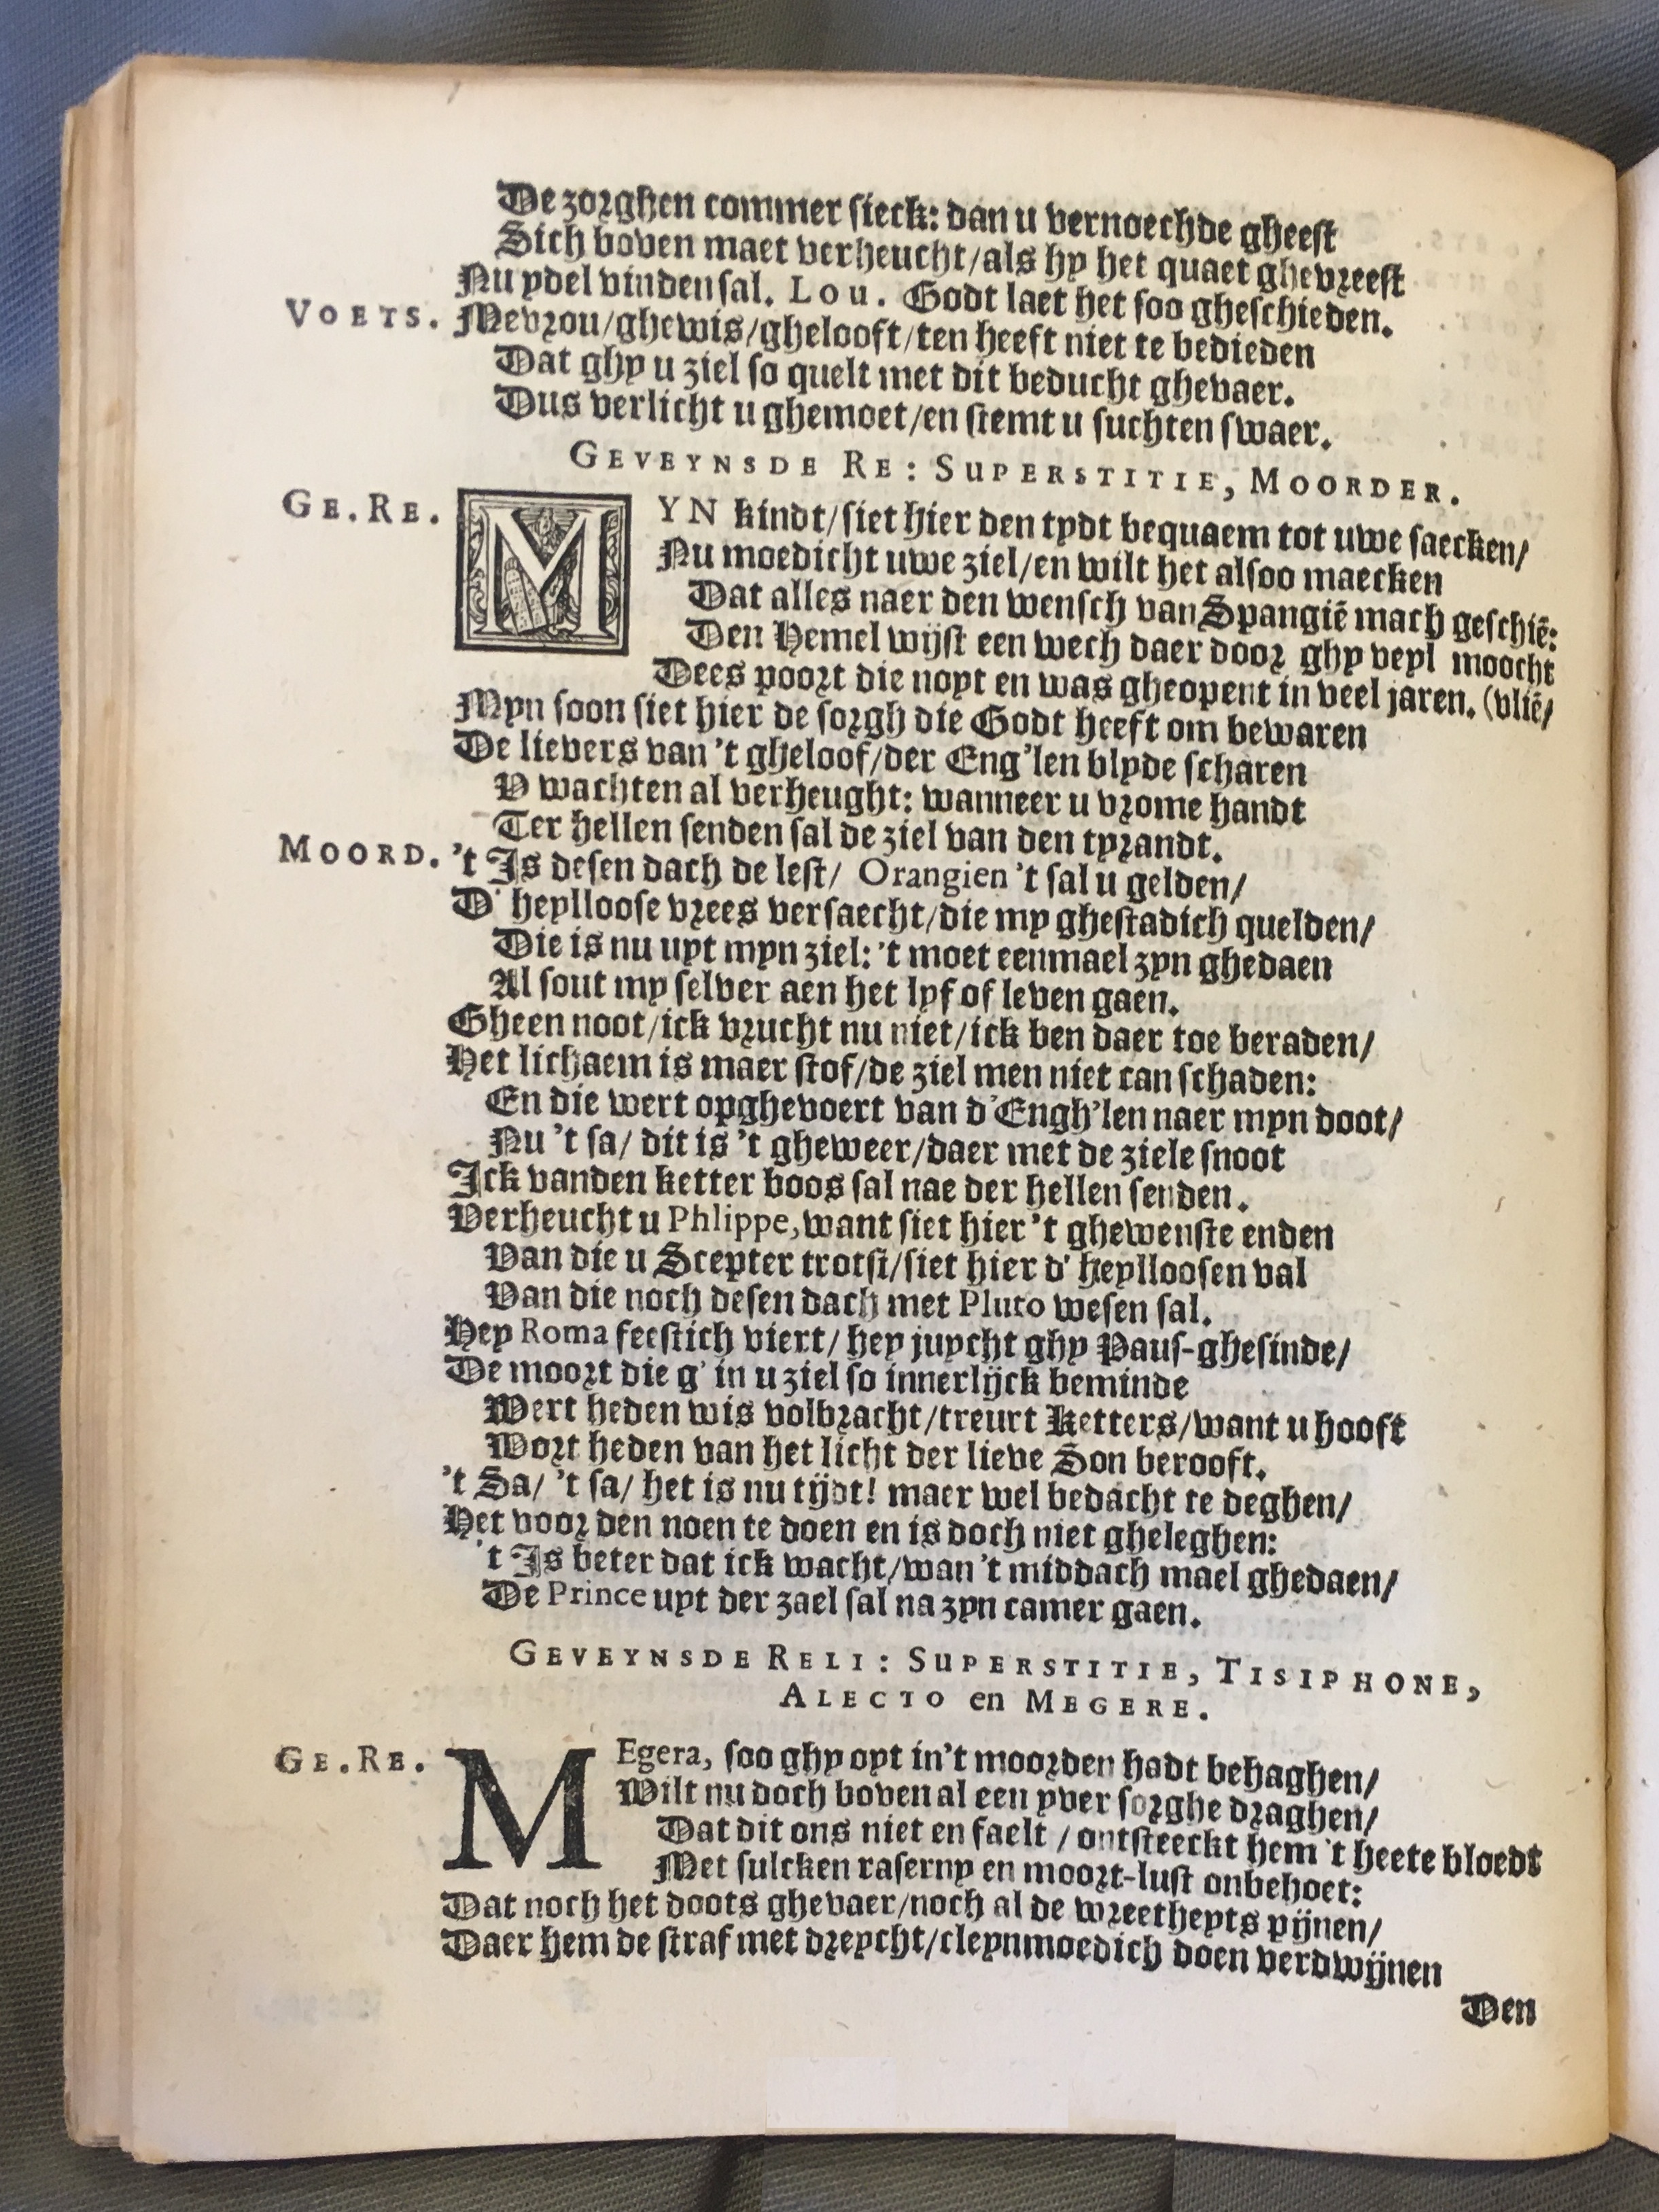 De zorghen commer sieck: dan u vernoechde gheest
Sich boven maet verheucht/als hy het quaet ghevreest
Nu ydel vinden sal. Lou. Godt laet het soo gheschieden.
VOETS. Mevrou/ghewis/ghelooft/ten heeft niet te bedieden
Dat ghy u ziel so quelt met dit beducht ghevaer.
Dus verlicht u ghemoet/en stemt u suchten swaer.
GEVEYNSDE RE: SUPERSTITIE, MOORDER.
GE.RE. MYN kindt/siet hier den tydt bequaem tot uwe saecken/
Nu moedicht uwe ziel/en wilt het alsoo maecken
Dat alles naer den wensch van Spangiē mach geschiē:
Den Hemel wijst een wech daer door ghy veyl moocht
Dees poort die noyt en was gheopent in veel jaren. (vliē/
Myn soon siet hier de sorgh die Godt heeft om bewaren
De lievers van 't gheloof/der Eng'len blyde scharen
V wachten al verheught: wanneer u vrome handt
Ter hellen senden sal de ziel van den tyrandt.
MOORD. 't Is desen dach de lest/ Orangien 't sal u gelden/
D' heylloose vrees versaecht/die my ghestadich quelden/
Die is nu uyt myn ziel: 't moet eenmael zyn ghedaen
Al sout my selver aen het lyf of leven gaen.
Gheen noot/ick vrucht nu niet/ick ben daer toe beraden/
Het lichaem is maer stof/de ziel men niet can schaden:
En die wert opghevoert van d'Engh'len naer myn doot/
Nu 't sa/ dit is 't gheweer/daer met de ziele snoot
Ick vanden ketter boos sal nae der hellen senden.
Verheucht u Phlippe, want siet hier 't ghewenste enden
Van die u Scepter trotst/siet hier d' heylloosen val
Van die noch desen dach met Pluto wesen sal.
Hey Roma feestich viert/ hey juycht ghy Paus-ghesinde/
De moort die g' in u ziel so innerlijck beminde
Wert heden wis volbracht/treurt Ketters/want u hooft
Wort heden van het licht der lieve Son berooft.
't Sa/ 't sa/ het is nu tijdt! maer wel bedacht te deghen/
Het voor den noen te doen en is doch niet gheleghen:
't Is beter dat ick wacht/wan't middach mael ghedaen/
De Prince uyt der zael sal na zyn camer gaen.
GEVEYNSDE RELI: SUPERSTITIE, TISIPHONE,
ALECTO en MEGERE.
GE.RE. MEgera, soo ghy oyt in't moorden hadt behaghen/
Wilt nu doch boven al een yver sorghe draghen/
Dat dit ons niet en faelt / ontsteeckt hem 't heete bloedt
Met sulcken raserny en moort-lust onbehoet:
Dat noch het doots ghevaer/noch al de wreetheyts pijnen/
Daer hem de straf met dreycht/cleynmoedich doen verdwijnen
Den